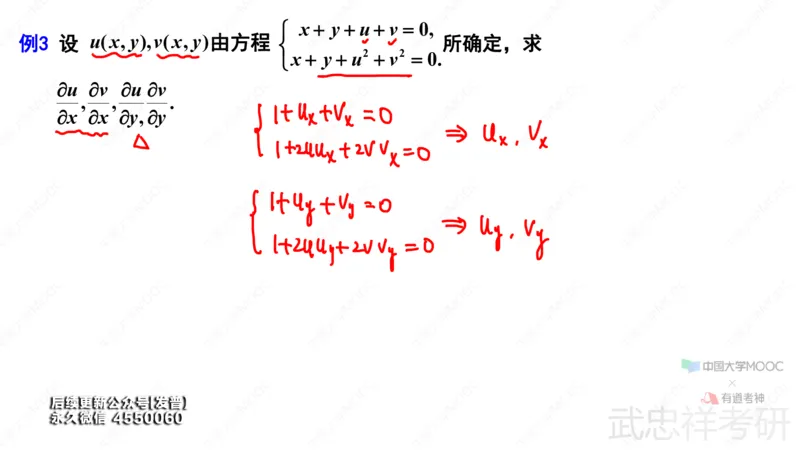 例3 设 u(x, y), v(x, y)由方程 { x + y + u + v = 0, x + y + u² + v² = 0. 所确定，求
∂u/∂x, ∂v/∂x, ∂u/∂y, ∂v/∂y.
{ 1+uₓ+vₓ=0
1+2uuₓ+2vvₓ=0 ⇒ uₓ, vₓ
{ 1+u_y+v_y=0
1+2uu_y+2vv_y=0 ⇒ u_y, v_y
中国大学MOOC
×
有道考神
后续更新公众号[发普]
永久微信 4550060
武忠祥考研